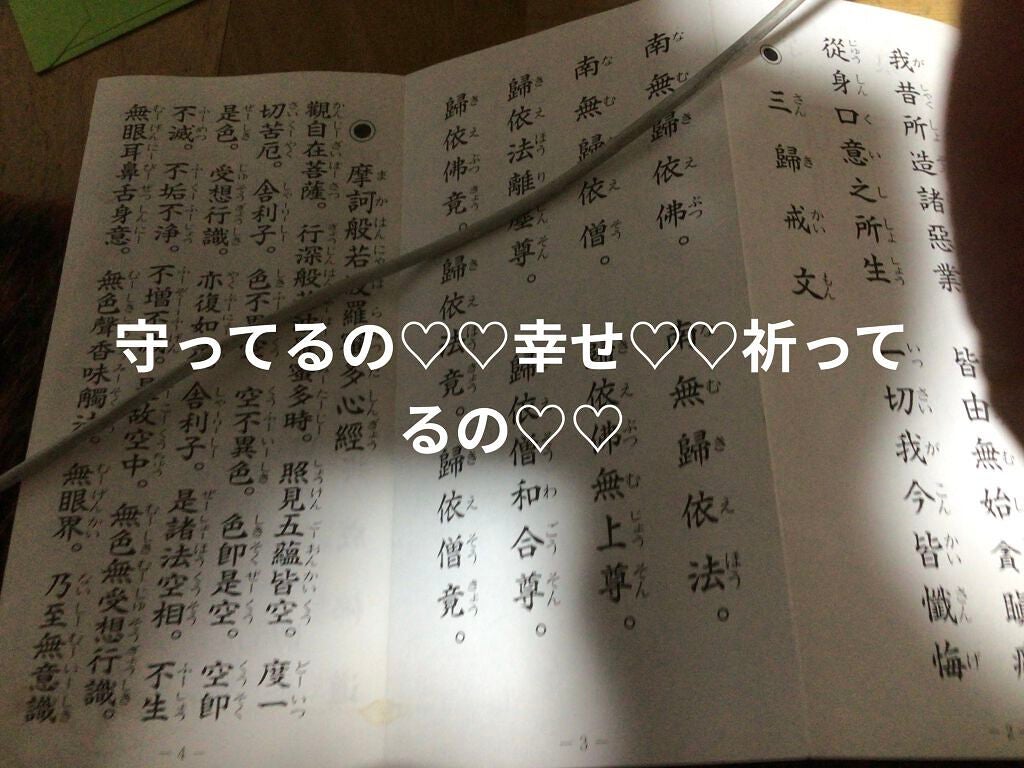 守ってるの♡♡幸せ♡♡祈って
るの♡♡
我昔所造諸惡業 皆由無始貪瞋
從身口意之所生 一切我今皆懺悔
三歸戒文
南無歸依佛。 南無歸依法。
南無歸依僧。 歸依佛無上尊。
歸依法離塵尊。 歸依僧和合尊。
歸依佛竟。 歸依法竟。 歸依僧竟。
－3－
摩訶般若波羅蜜多心經
觀自在菩薩。行深般若波羅蜜多時。照見五蘊皆空。度一
切苦厄。舍利子。色不異空。空不異色。色卽是空。空卽
是色。受想行識。亦復如是。舍利子。是諸法空相。不生
不滅。不垢不浄。不增不減。是故空中。無色無受想行識。
無眼耳鼻舌身意。無色聲香味觸法。無眼界。乃至無意識
－4－